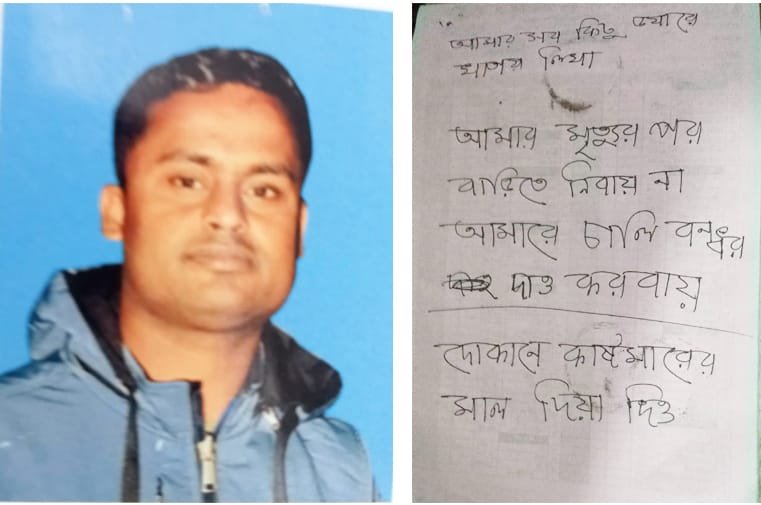 আমার সব কিছু
মাপয় লিয়া
আমার মৃত্যুর পর
বাড়িতে নিবায় না
আমারে চালি বনধর
দাও করবায়
দোকানে কাষ্টমারের
মাল দিয়া দিও